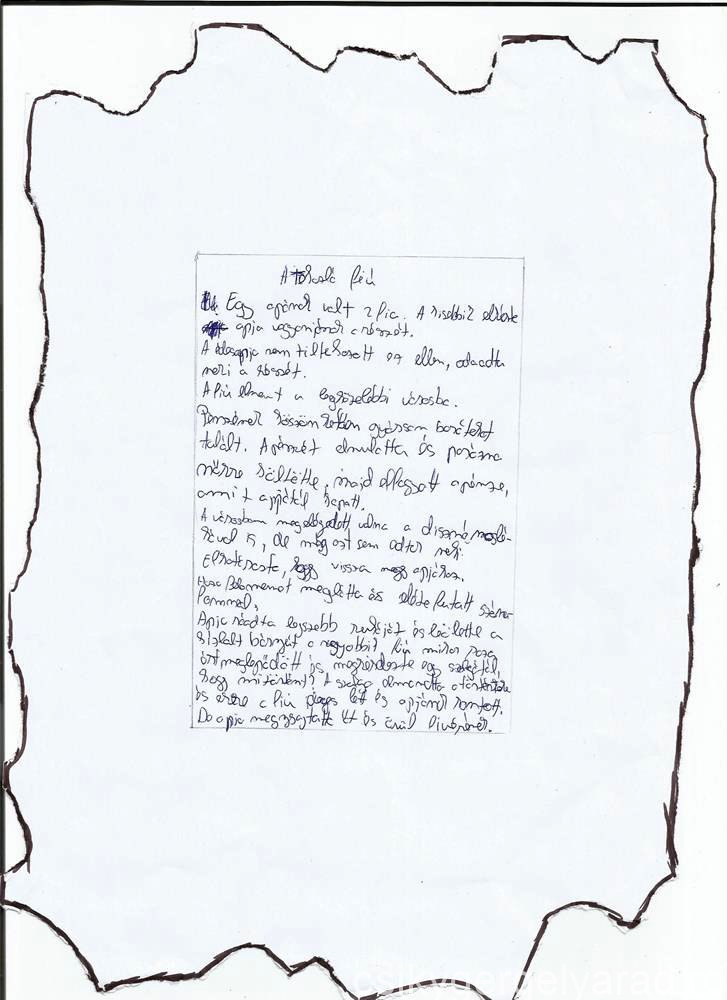 A tékozló fiú
Egy apának volt 2 fia. A kisebbik elkérte
apja vagyonának a részét.
A édesapja nem tiltakozott ez ellen, odaadta
neki a részét.
A fiú elment a legközelebbi városba.
Pénzének köszönhetően gyorsan barátokat
talált. A pénzét elmulatta és parázna
nőkre költötte, majd elfogyott a pénze,
amit apjától kapott.
A városban megelégedett volna a disznó moslé-
kával is, de még azt sem adtak neki.
Elhatározta, hogy vissza megy apjához.
Haza felé menet meglátta és elébe futott
Apja ráadta legszebb ruháját és leölette a
hízlalt bárányt a nagyobbik fiú mikor haza
ért meglepődött és megkérdezte egy szolgától,
hogy mi történt? A szolga elmondta a történteket
és erre a fiú dühös lett és apjának rontott.
De apja megnyugtatta őt és örül fivérének.
csikygergelyarad